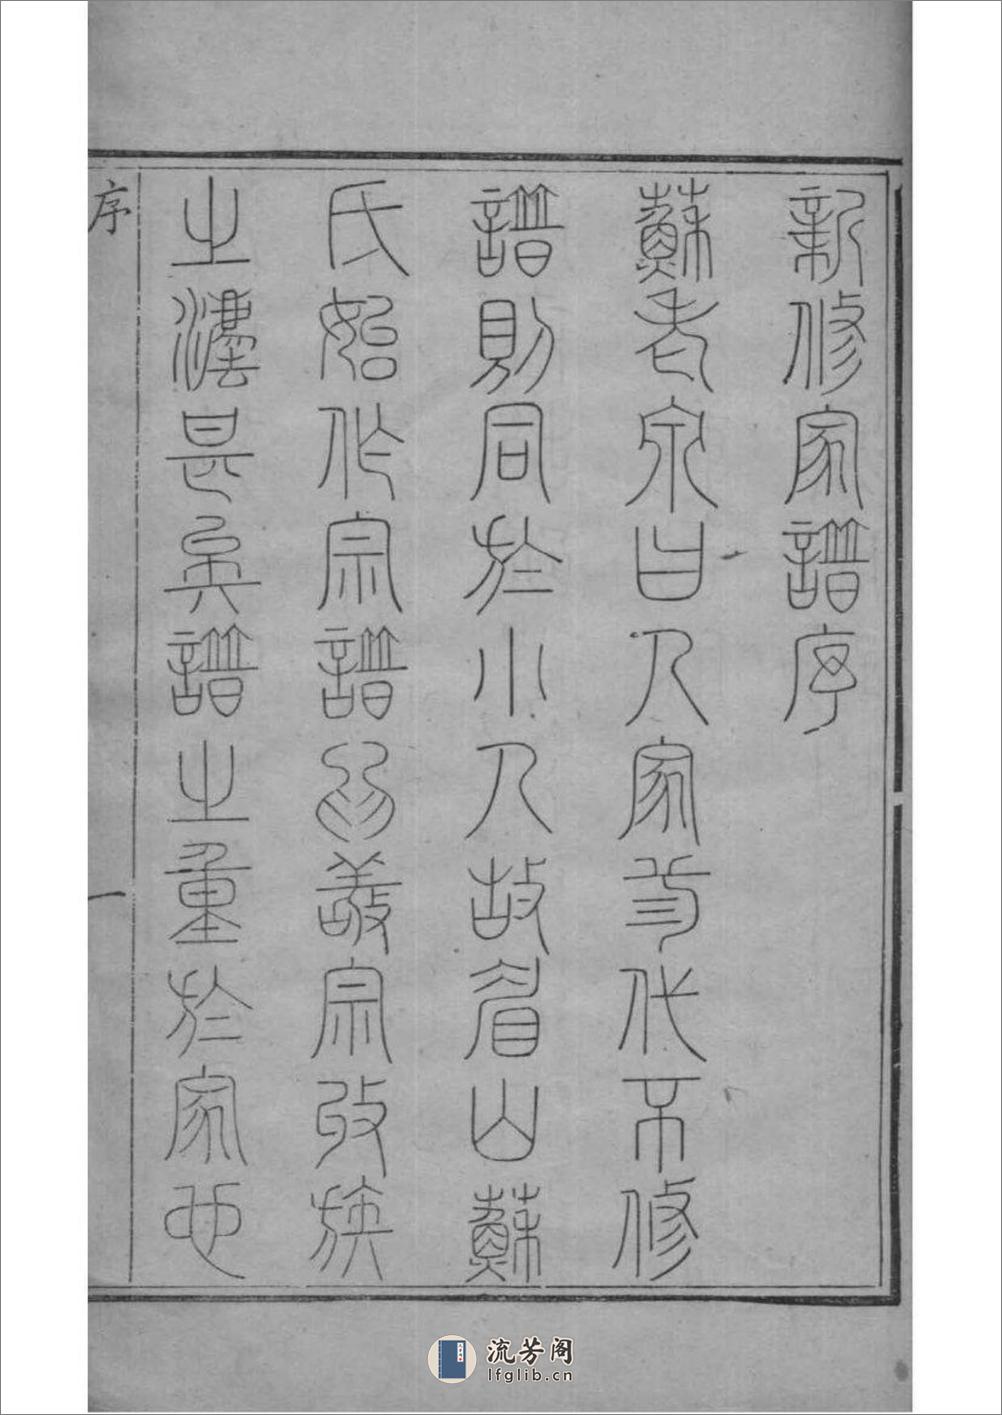 新修家譜序
蘇老泉曰人家三代不修
譜則同於小人故眉山蘇
氏始作宗譜為敬宗收族
之灋甚矣譜之重於家也
序 一
流芳阁
lfglib.cn